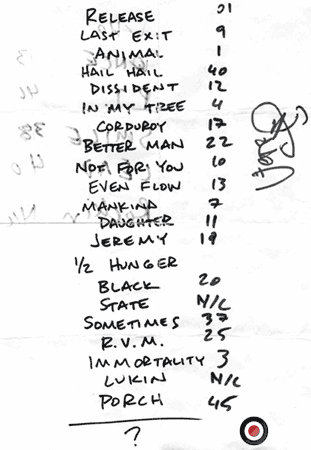 RELEASE 01
LAST EXIT 9
ANIMAL 1
HAIL HAIL 40
DISSIDENT 12
IN MY TREE 4
CORDUROY 17
BETTER MAN 22
NOT FOR YOU 10
EVEN FLOW 13
MANKIND 7
DAUGHTER 11
JEREMY 19
1/2 HUNGER
BLACK 20
STATE N/C
SOMETIMES 37
R.V.M. 25
IMMORTALITY 3
LUKIN N/C
PORCH 45
?